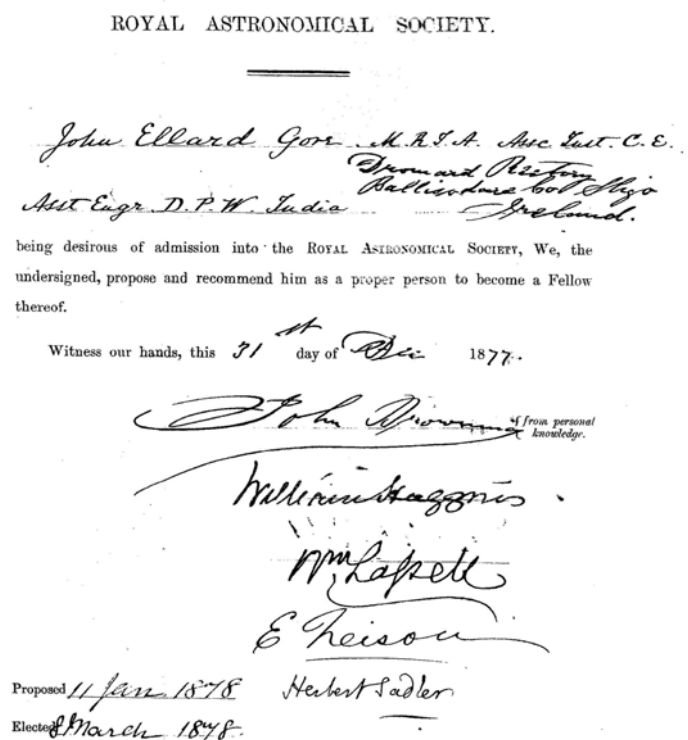 ROYAL ASTRONOMICAL SOCIETY.
John Ellard Gore M.R.I.A. Assc Inst. C.E.
Dromard Rectory
Ballisodare Co. Sligo
Asst Engr. D.P.W. India Ireland.
being desirous of admission into the ROYAL ASTRONOMICAL SOCIETY, We, the
undersigned, propose and recommend him as a proper person to become a Fellow
thereof.
Witness our hands, this 31st day of Dec 1877.
John Browning
from personal
knowledge.
William Huggins
Wm Lassell
E Neison
Proposed 11 Jan. 1878 Herbert Sadler
Elected 8 March 1878.